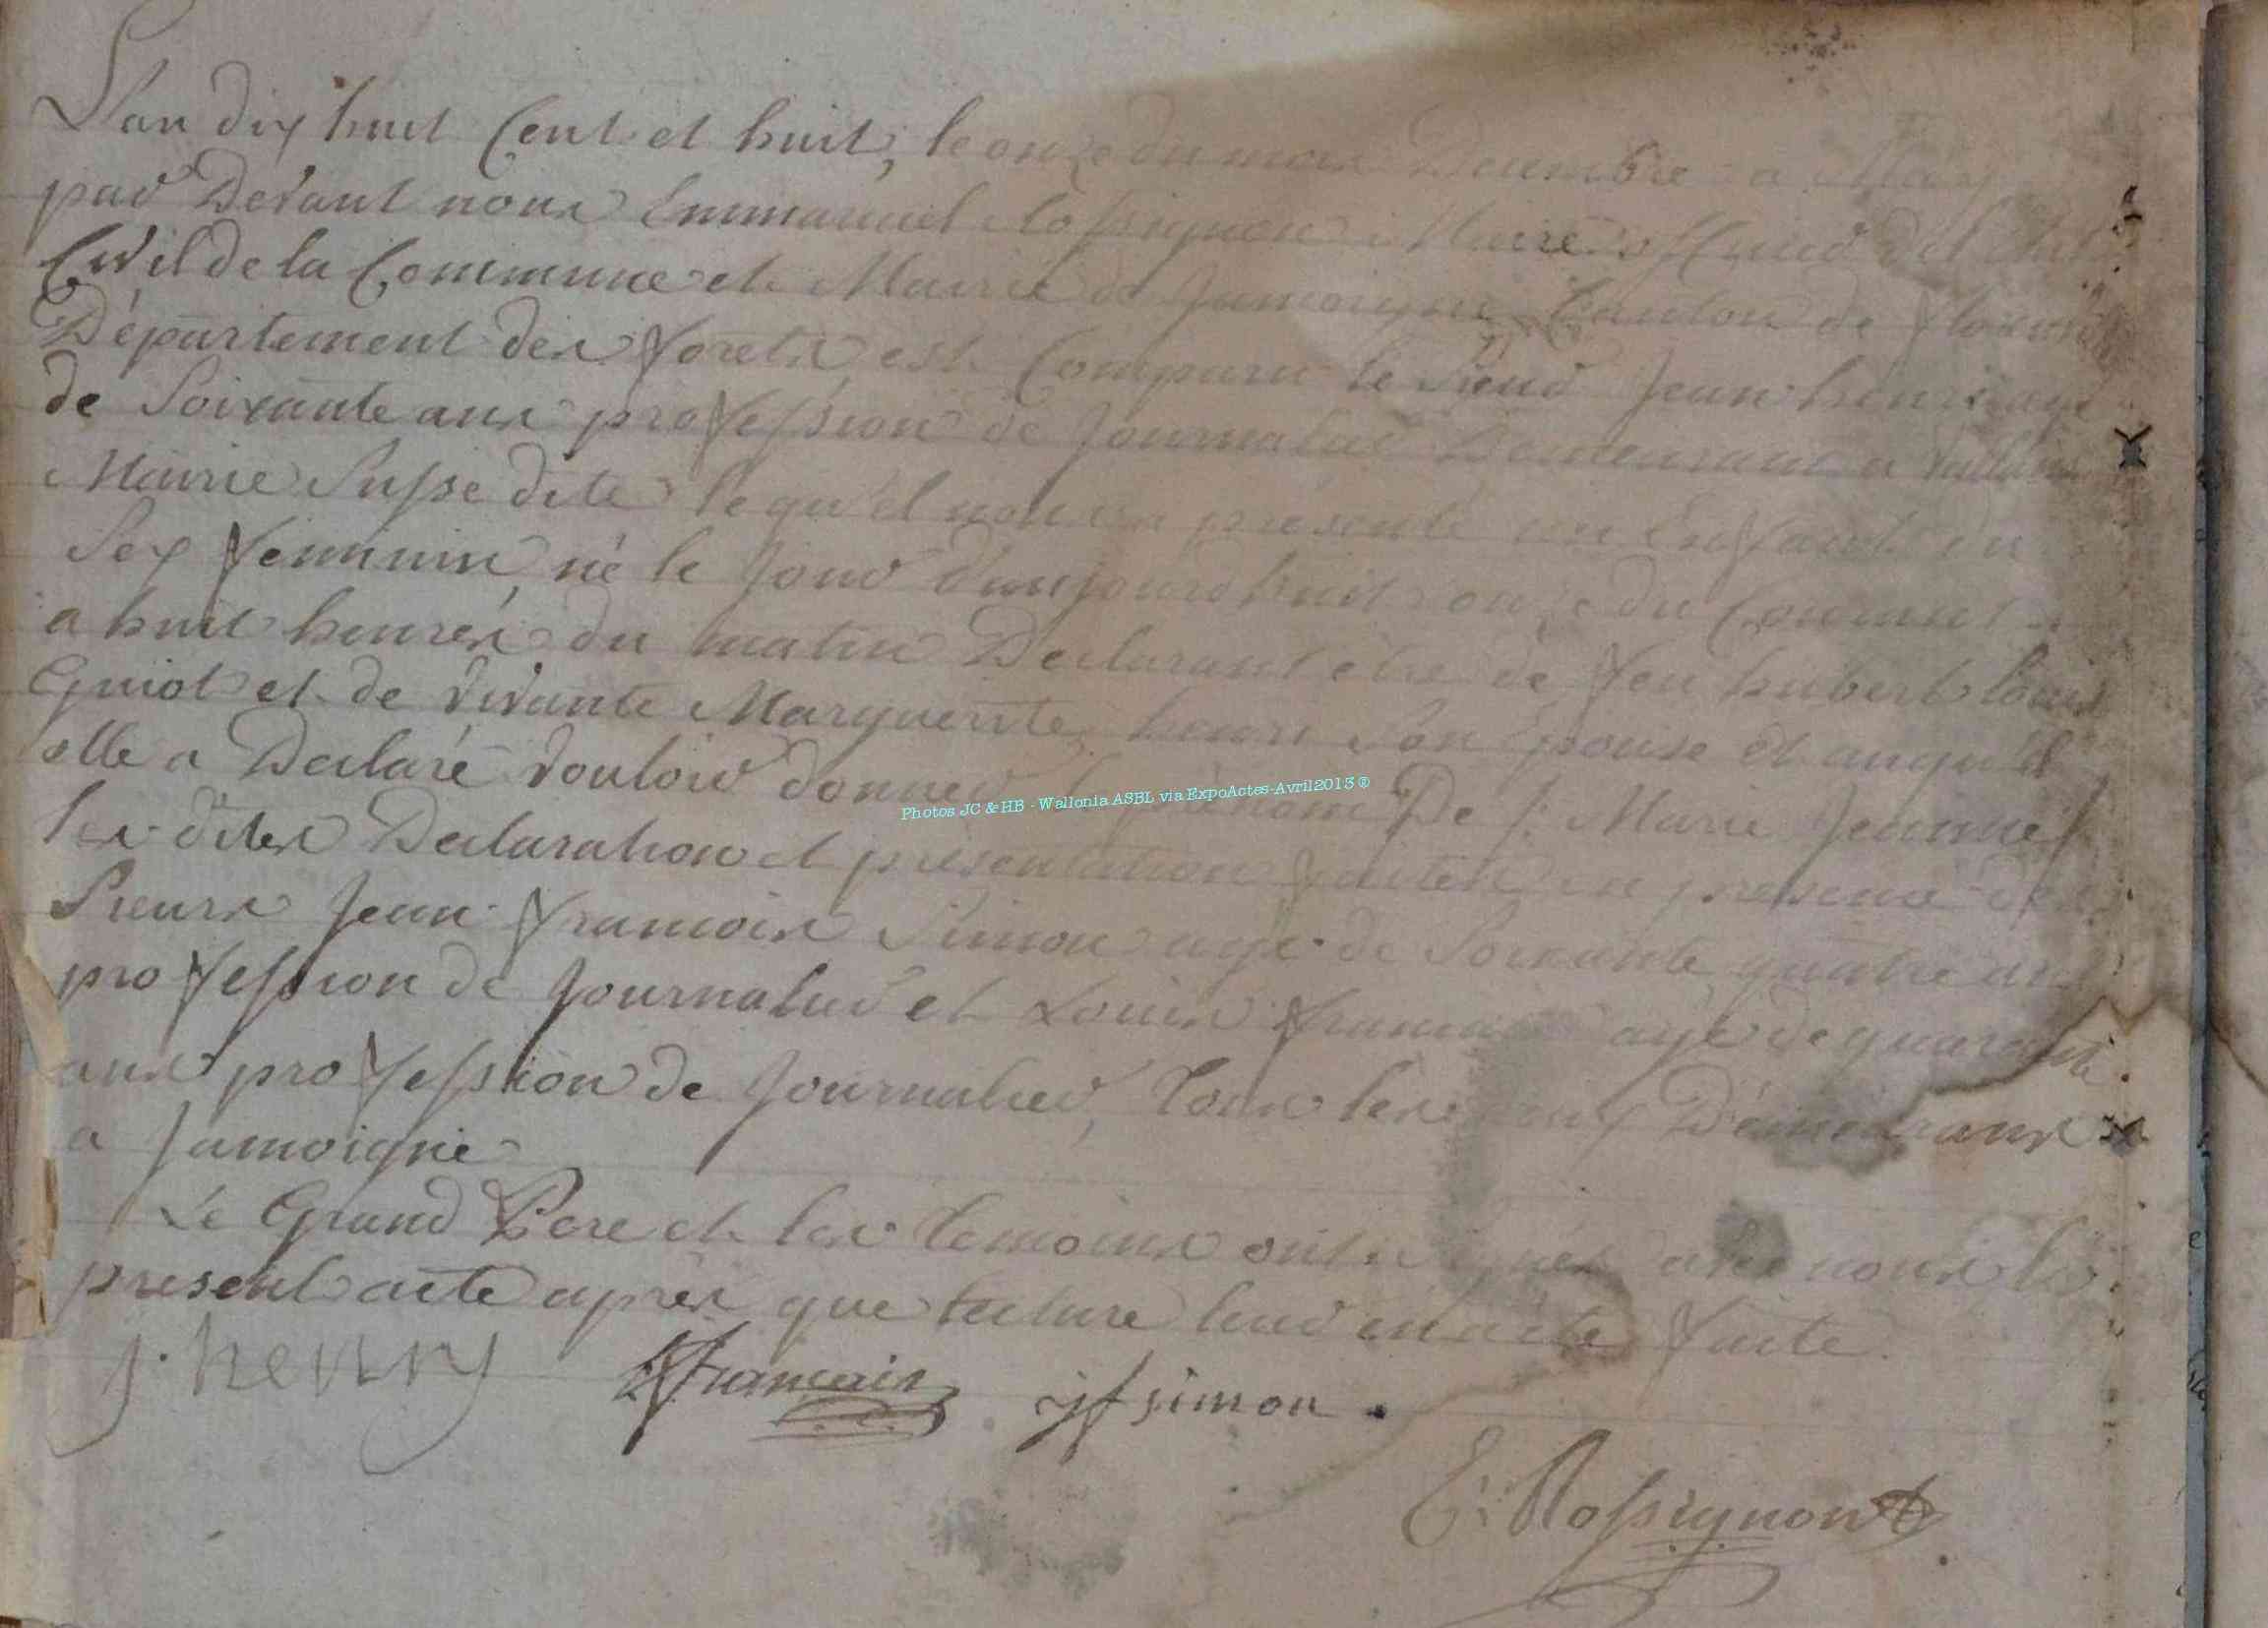 L'an dix huit Cent et huit, le onze du mois Decembre a
par Devant nous Emmanuel Rossignon Maire officier de l'Etat
Civil de la Commune et Mairie de Jamoigne Canton de florenville
Département des forets, est Comparu le Sieur Jean henri agé
de Soixante ans profession de Journalier Demeurant a
Mairie Susse dite lequ'el nous a présenté un Enfant du
Sex feminin, né le Jour d'aujourd huit onze du Courant
a huit heures du matin Declarant etre de feu hubert louis
Guiot et de vivante Marguerite henri Son Epouse et auqu'el
elle a Declaré vouloir donner le prénom De /. Marie Jeanne /.
les dites Declaration et présentation faites en présence des
Sieurs Jean françois Simon agé de Soixante quatre ans
profession de Journalier et Louis francois agé de quarante
ans profession de Journalier, tous les deux Démeurans
a Jamoigne
Le Grand Pere et les temoins ont signés avec nous le
present acte aprés que lecture leur en a été faite.
j. henry
L françois
jf simon.
E: Rossignon
Photos JC & HB - Wallonia ASBL via ExpoActes-Avril2013 ®